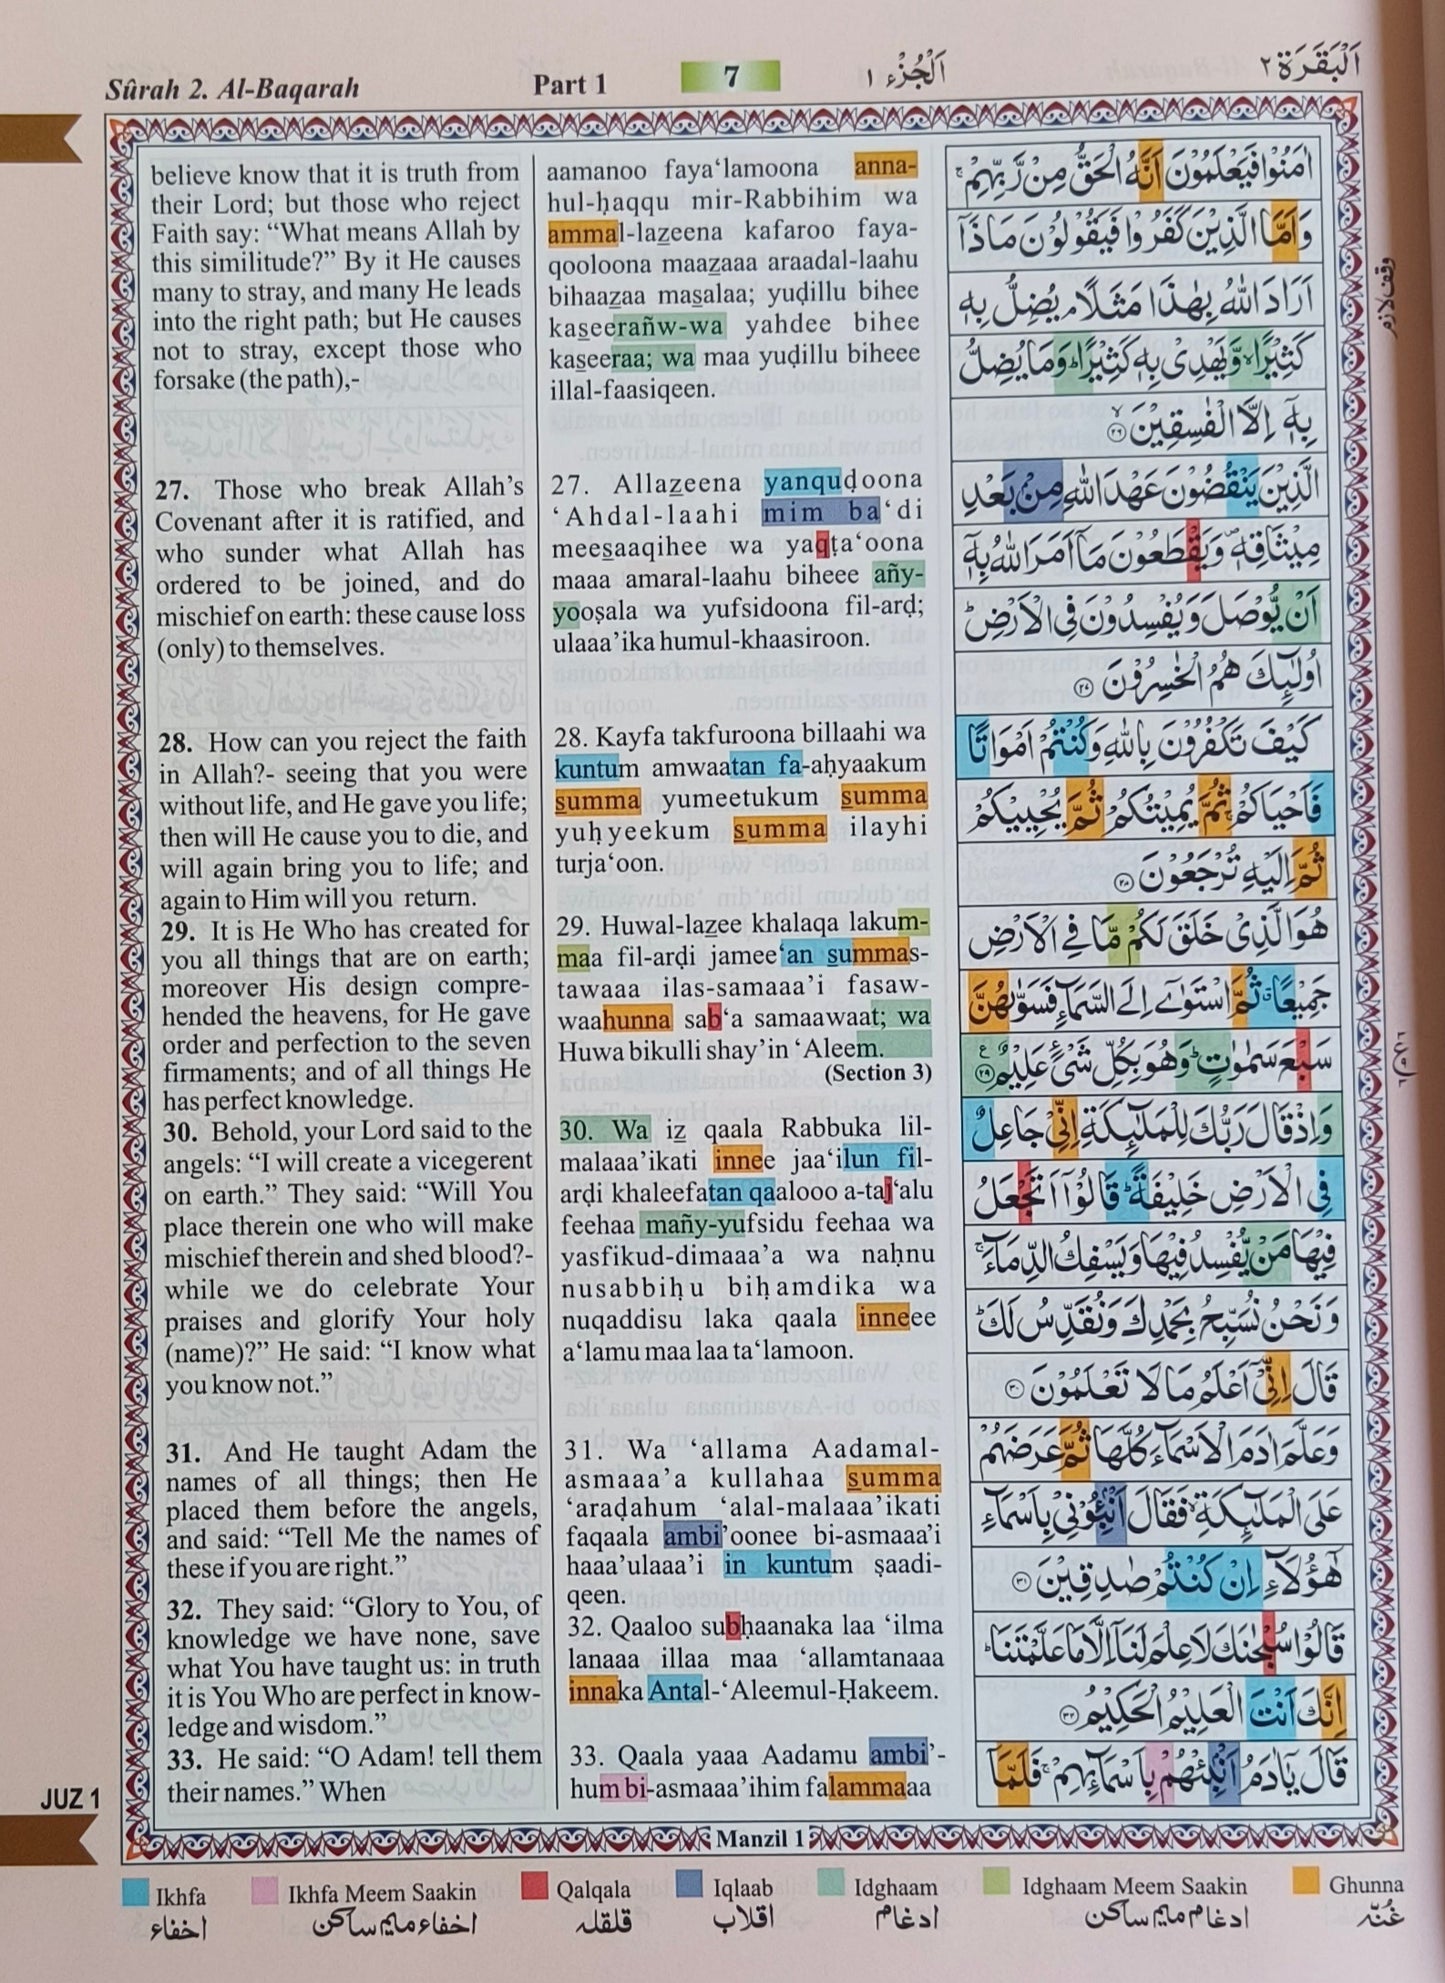 Sûrah 2. Al-Baqarah
Part 1
7
اَلْجُزْء ١
اَلْبَقَرَة ٢
believe know that it is truth from
their Lord; but those who reject
Faith say: “What means Allah by
this similitude?” By it He causes
many to stray, and many He leads
into the right path; but He causes
not to stray, except those who
forsake (the path),-
27. Those who break Allah’s
Covenant after it is ratified, and
who sunder what Allah has
ordered to be joined, and do
mischief on earth: these cause loss
(only) to themselves.
28. How can you reject the faith
in Allah?- seeing that you were
without life, and He gave you life;
then will He cause you to die, and
will again bring you to life; and
again to Him will you return.
29. It is He Who has created for
you all things that are on earth;
moreover His design compre-
hended the heavens, for He gave
order and perfection to the seven
firmaments; and of all things He
has perfect knowledge.
30. Behold, your Lord said to the
angels: “I will create a vicegerent
on earth.” They said: “Will You
place therein one who will make
mischief therein and shed blood?-
while we do celebrate Your
praises and glorify Your holy
(name)?” He said: “I know what
you know not.”
31. And He taught Adam the
names of all things; then He
placed them before the angels,
and said: “Tell Me the names of
these if you are right.”
32. They said: “Glory to You, of
knowledge we have none, save
what You have taught us: in truth
it is You Who are perfect in know-
ledge and wisdom.”
33. He said: “O Adam! tell them
their names.” When
aamanoo faya‘lamoona anna-
hul-ḥaqqu mir-Rabbihim wa
ammal-lazeena kafaroo faya-
qooloona maazaaa araadal-laahu
bihaazaa masalaa; yuḍillu bihee
kaseerañw-wa yahdee bihee
kaseeraa; wa maa yuḍillu biheee
illal-faasiqeen.
27. Allazeena yanquḍoona
‘Ahdal-laahi mim ba‘di
meesaaqihee wa yaqṭa‘oona
maaa amaral-laahu biheee añy-
yooṣala wa yufsidoona fil-arḍ;
ulaaa’ika humul-khaasiroon.
28. Kayfa takfuroona billaahi wa
kuntum amwaatan fa-aḥyaakum
summa yumeetukum summa
yuḥyeekum summa ilayhi
turja‘oon.
29. Huwal-lazee khalaqa lakum-
maa fil-arḍi jamee‘an summas-
tawaaa ilas-samaaa’i fasaw-
waahunna sab‘a samaawaat; wa
Huwa bikulli shay’in ‘Aleem.
(Section 3)
30. Wa iz qaala Rabbuka lil-
malaaa’ikati innee jaa‘ilun fil-
arḍi khaleefatan qaalooo a-taj‘alu
feehaa mañy-yufsidu feehaa wa
yasfikud-dimaaa’a wa naḥnu
nusabbiḥu biḥamdika wa
nuqaddisu laka qaala inneee
a‘lamu maa laa ta‘lamoon.
31. Wa ‘allama Aadamal-
asmaaa’a kullahaa summa
‘araḍahum ‘alal-malaaa’ikati
faqaala ambi’oonee bi-asmaaa’i
haaa’ulaaa’i in kuntum ṣaadi-
qeen.
32. Qaaloo subḥaanaka laa ‘ilma
lanaaa illaa maa ‘allamtanaaa
innaka Antal-‘Aleemul-Ḥakeem.
33. Qaala yaaa Aadamu ambi’-
hum bi-asmaaa’ihim falammaaa
اٰمَنُوْا فَيَعْلَمُوْنَ اَنَّهُ الْحَقُّ مِنْ رَّبِّهِمْ ۚ
وَاَمَّا الَّذِيْنَ كَفَرُوْا فَيَقُوْلُوْنَ مَاذَآ
اَرَادَ اللّٰهُ بِهٰذَا مَثَلًا ۘ يُضِلُّ بِهٖ
كَثِيْرًا ۙ وَّيَهْدِىْ بِهٖ كَثِيْرًا ؕ وَمَا يُضِلُّ
بِهٖۤ اِلَّا الْفٰسِقِيْنَ ۙ‏﴿۲۶﴾
الَّذِيْنَ يَنْقُضُوْنَ عَهْدَ اللّٰهِ مِنْۢ بَعْدِ
مِيْثَاقِهٖ ۪ وَيَقْطَعُوْنَ مَآ اَمَرَ اللّٰهُ بِهٖۤ
اَنْ يُّوْصَلَ وَيُفْسِدُوْنَ فِى الْاَرْضِ ؕ
اُولٰٓئِكَ هُمُ الْخٰسِرُوْنَ ﴿۲۷﴾
كَيْفَ تَكْفُرُوْنَ بِاللّٰهِ وَكُنْتُمْ اَمْوَاتًا
فَاَحْيَاكُمْ ۚ ثُمَّ يُمِيْتُكُمْ ثُمَّ يُحْيِيْكُمْ
ثُمَّ اِلَيْهِ تُرْجَعُوْنَ ﴿۲۸﴾
هُوَ الَّذِىْ خَلَقَ لَكُمْ مَّا فِى الْاَرْضِ
جَمِيْعًا ۗ ثُمَّ اسْتَوٰٓى اِلَى السَّمَآءِ فَسَوّٰىهُنَّ
سَبْعَ سَمٰوٰتٍ ؕ وَهُوَ بِكُلِّ شَىْءٍ عَلِيْمٌ ﴿۲۹﴾
وَاِذْ قَالَ رَبُّكَ لِلْمَلٰٓئِكَةِ اِنِّىْ جَاعِلٌ
فِى الْاَرْضِ خَلِيْفَةً ؕ قَالُوْٓا اَتَجْعَلُ
فِيْهَا مَنْ يُّفْسِدُ فِيْهَا وَيَسْفِكُ الدِّمَآءَ ۚ
وَنَحْنُ نُسَبِّحُ بِحَمْدِكَ وَنُقَدِّسُ لَكَ ؕ
قَالَ اِنِّىْٓ اَعْلَمُ مَا لَا تَعْلَمُوْنَ ﴿۳۰﴾
وَعَلَّمَ اٰدَمَ الْاَسْمَآءَ كُلَّهَا ثُمَّ عَرَضَهُمْ
عَلَى الْمَلٰٓئِكَةِ ۙ فَقَالَ اَنْۢبِـُٔوْنِىْ بِاَسْمَآءِ
هٰٓؤُلَآءِ اِنْ كُنْتُمْ صٰدِقِيْنَ ﴿۳۱﴾
قَالُوْا سُبْحٰنَكَ لَا عِلْمَ لَنَآ اِلَّا مَا عَلَّمْتَنَا ؕ
اِنَّكَ اَنْتَ الْعَلِيْمُ الْحَكِيْمُ ﴿۳۲﴾
قَالَ يٰٓاٰدَمُ اَنْۢبِئْهُمْ بِاَسْمَآئِهِمْ ۚ فَلَمَّآ
وقف لازم
JUZ 1
Manzil 1
Ikhfa
Ikhfa Meem Saakin
Qalqala
Iqlaab
Idghaam
Idghaam Meem Saakin
Ghunna
اخفاء
اخفاء میم ساکن
قلقلہ
اقلاب
ادغام
ادغام میم ساکن
غُنّہ